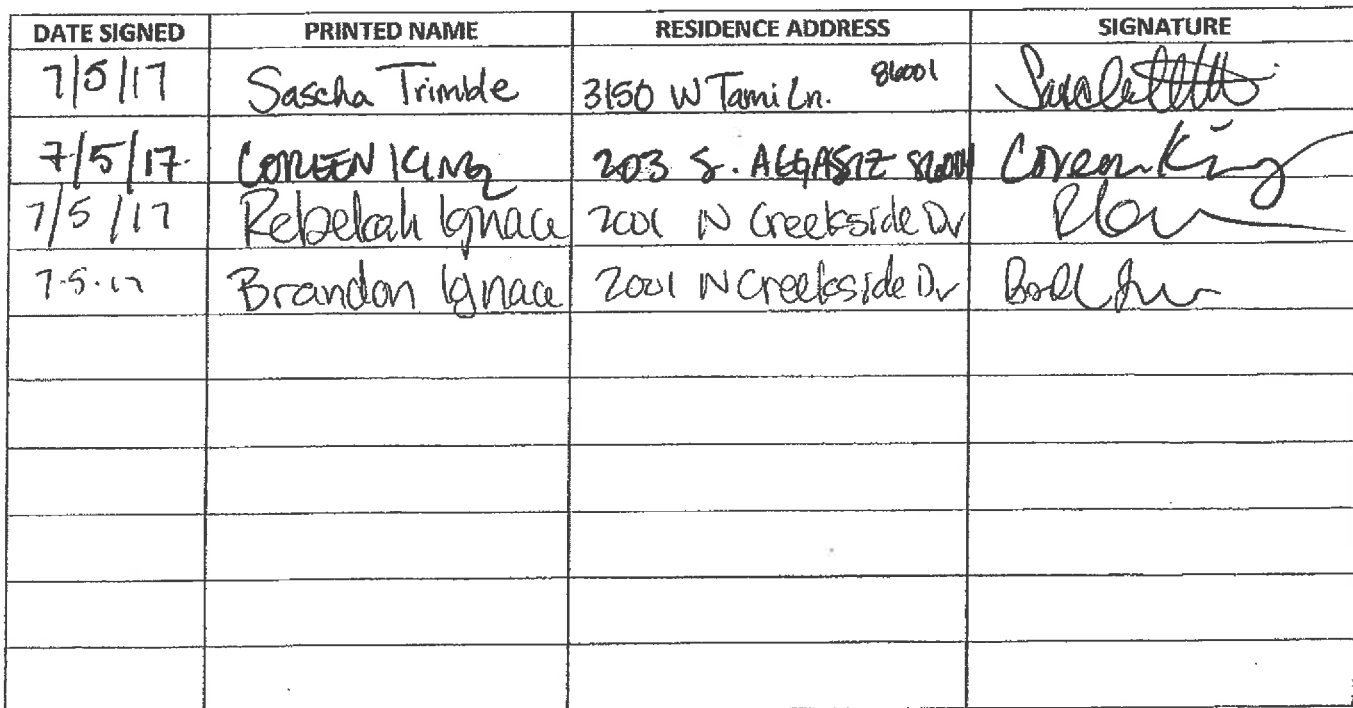 DATE SIGNED PRINTED NAME RESIDENCE ADDRESS SIGNATURE
7/5/17 Sascha Trimble 3150 W Tami Ln. 86001
7/5/17 COREEN KING 203 S. AGGASIZ 86001 Coreen King
7/5/17 Rebekah Ignace 2001 N Creekside Dr
7.5.17 Brandon Ignace 2001 N Creekside Dr